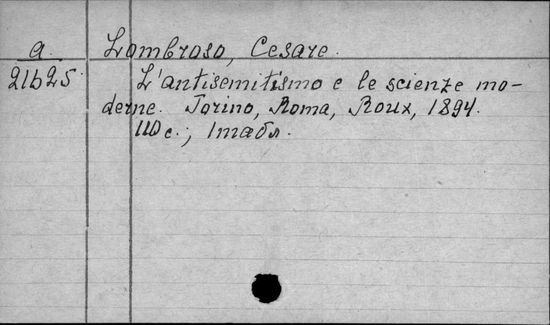 a
21625
Lombroso, Cesare.
L'antisemitismo e le scienze mo-
derne. Torino, Roma, Roux, 1894.
110 с.; 1 табл.